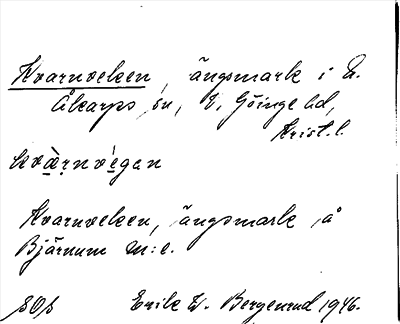 Kvarnveken, ängsmark i N.
Åkarps sn, V. Göinge hd,
Krist. l.
kvàrnvégan
Kvarnveken, ängsmark å
Bjärnum m:e.
SOS Erik W. Bergenrud 1946.